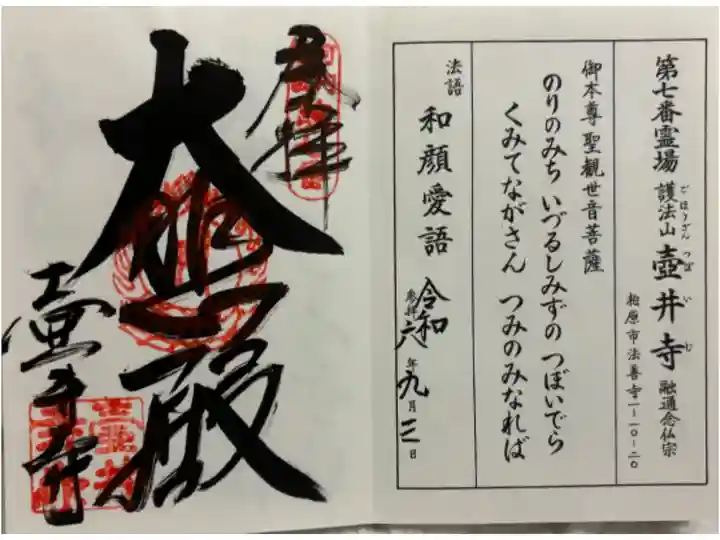 第七番霊場 護法山 壺井寺 融通念仏宗
ごほうざん つぼ い じ
柏原市法善寺一-一〇-二〇
御本尊 聖観世音菩薩
のりのみち いづるしみずの つぼいでら
くみてながさん つみのみなれば
法語 和顔愛語
参拝 令和六年九月三日
奉拝
大悲殿
壺井寺